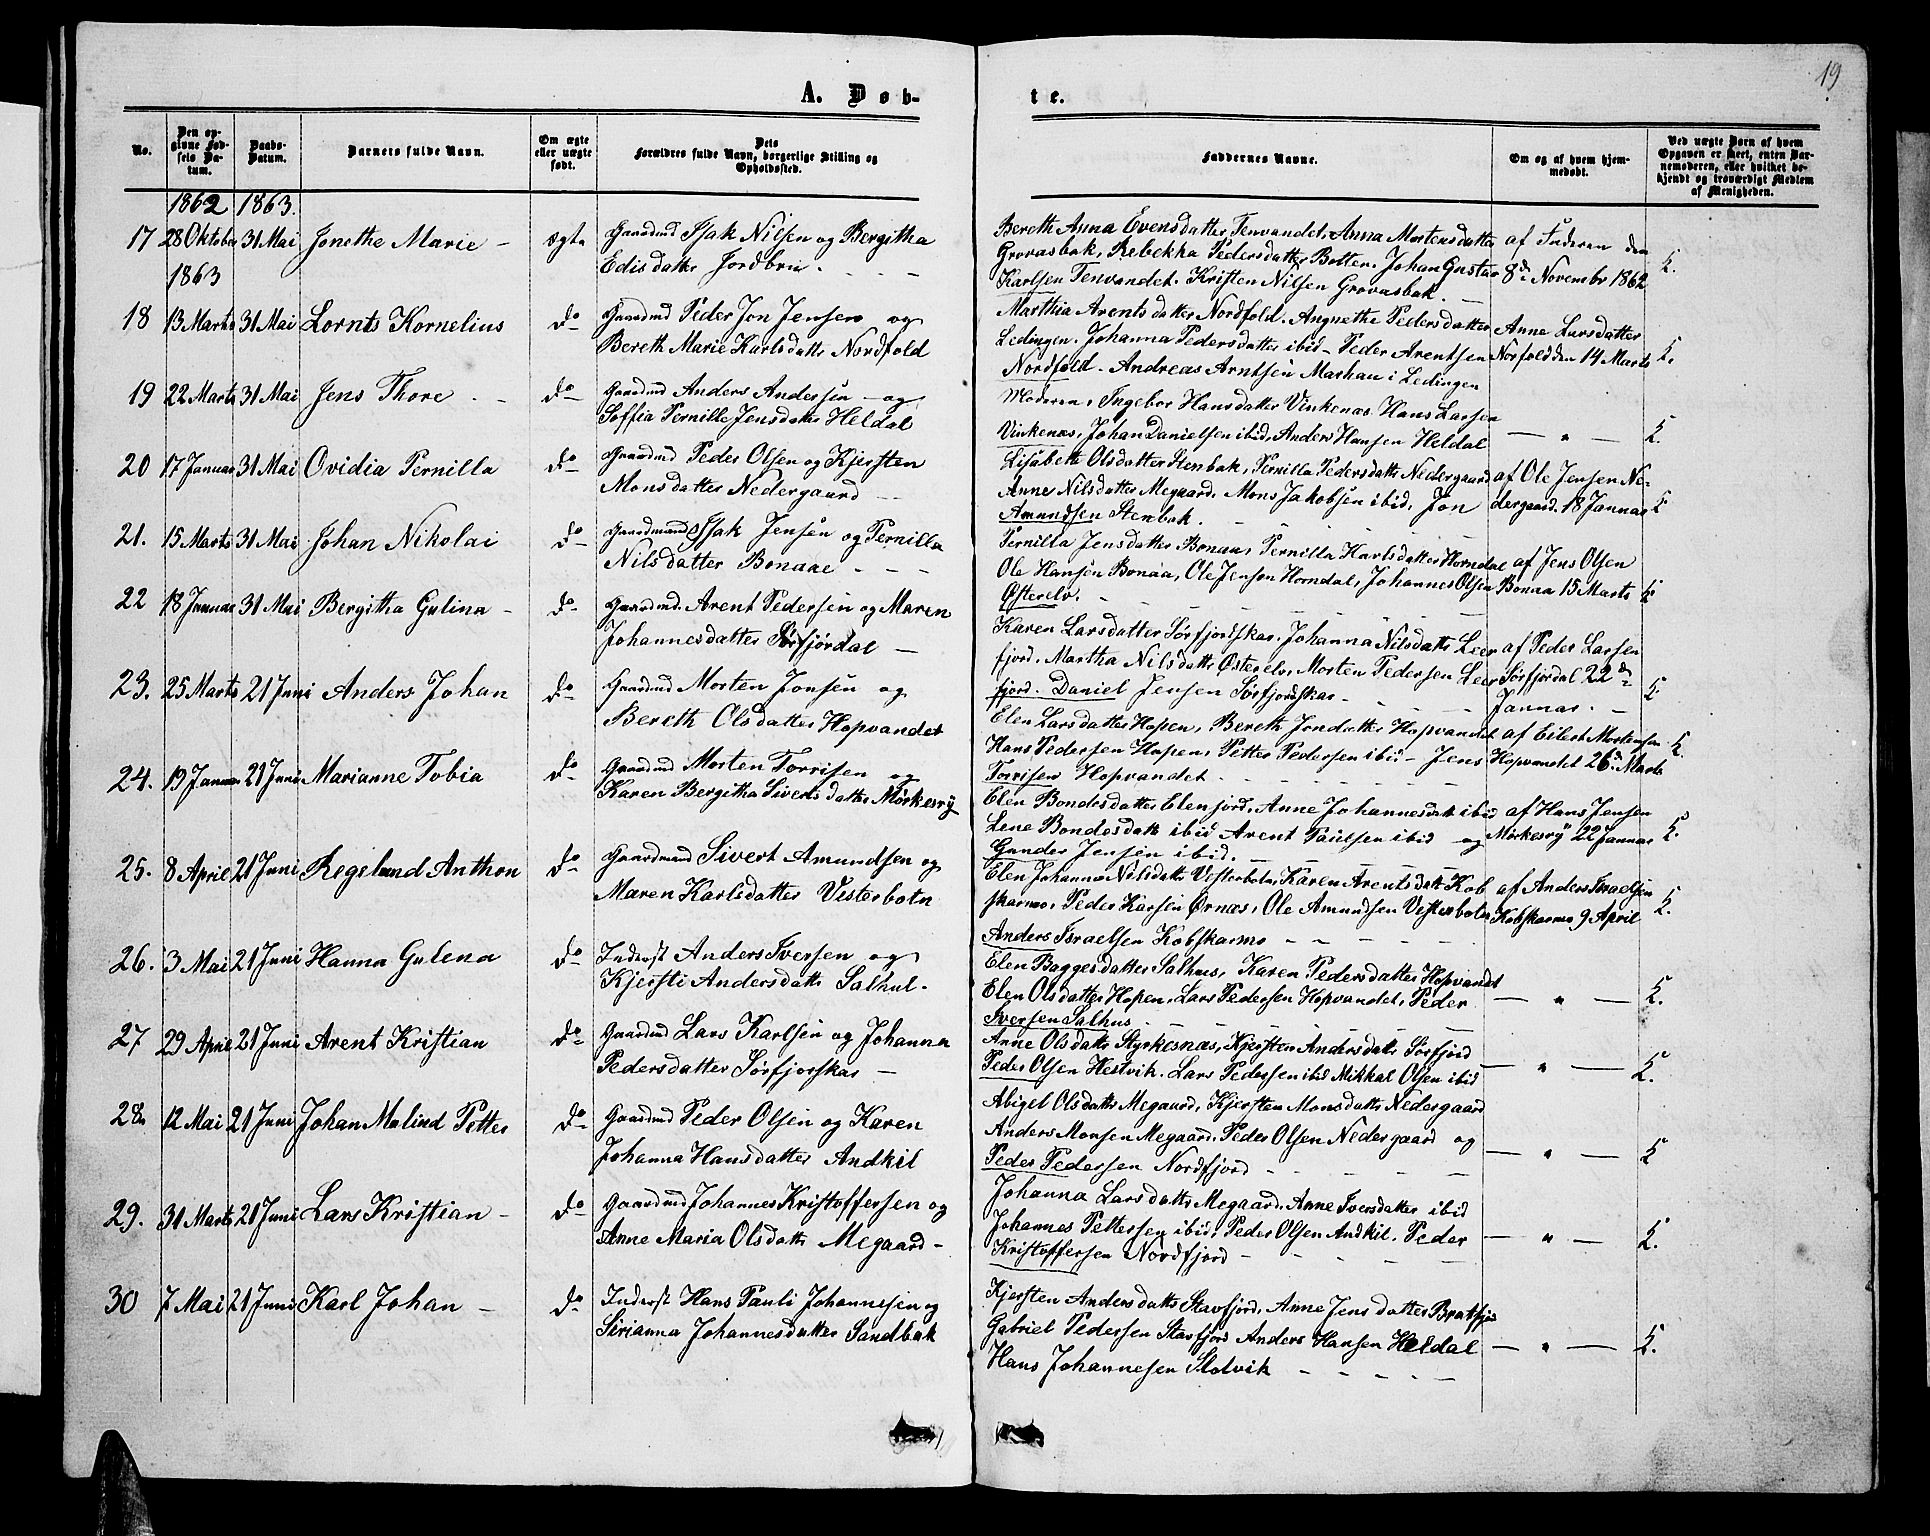 19
A. Døb-
te.
No.
Den op-
givne Fød-
sels Da-
tum.
Daabs-
Datum.
Barnets fulde Navn.
Om ægte
eller uægte
født.
Dets
Forældres fulde Navn, borgerlige Stilling og
Opholdssted.
Faddernes Navne.
Om og af hvem hjem-
medøbt.
Ved uægte Børn af hvem
Opgaven er skeet, enten Bar-
nemoderen, eller hvilket be-
kjendt og troværdigt Medlem
af Menigheden.
1862 1863.
17 28 Oktober 31 Mai Jonethe Marie - ægte Gaardmd Isak Nilsen og Bergitha
Edisdatter Jordbru. - - -
Bereth Anna Evensdatter Tenvandet. Anna Mortensdatter
Grovasbak, Rebekka Pedersdatter Botten. Johan Gustav
Karlsen Tenvandet. Kristen Nilsen Grovasbak.
af Faderen den
8de November 1862
1863
18 13 Marts 31 Mai Lornts Kornelius do Gaardmd Peder Jon Jensen og
Bereth Marie Karlsdatter Nordfold
Marthia Arentsdatter Nordfold. Angnethe Pedersdatter
Ledingen. Johanna Pedersdatter ibid - Peder Arentsen
Nordfold. Andreas Arntsen Marhau i Ledingen
Anne Larsdatter
Norfold den 14 Marts
19 22 Marts 31 Mai Jens Thore - do Gaardmd Anders Andersen - og
Soffia Pernille Jensdatter Heldal
Moderen, Ingebor Hansdatter Vinkenæs. Hans Larsen
Vinkenæs, Johan Danielsen ibid, Anders Hansen Heldal — " —
20 17 Januar 31 Mai Ovidia Pernilla do Gaardmd Peder Olsen og Kjersten
Monsdatter Nedergaard
Lisabeth Olsdatter Stenbak, Pernilla Pedersdatter Nedergaard
Anne Nilsdatter Megaard. Mons Jakobsen ibid, Jon
Amundsen Stenbak.
af Ole Jensen Ne-
dergaard. 18 Januar
21. 15 Marts 31 Mai Johan Nikolai do Gaardmand Isak Jensen og Pernilla
Nilsdatter Bonaae - - -
Pernilla Jensdatter Bonaa, Pernilla Karlsdatter Horndal
Ole Hansen Bonaa, Ole Jenson Horndal, Johannes Olsen
Østerelv.
af Jens Olsen
Bonaa 15 Marts
22 18 Januar 31 Mai Bergitha Gulina - do Gaardmd. Arent Pedersen og Maren
Johannesdatter Sørfjordal —
Karen Larsdatter Sørfjordskar. Johanna Nilsdatter Leer
fjord. Martha Nilsdatter Østerelv. Morten Pedersen Leer
fjord. Daniel Jensen Sørfjordskar -
af Peder Larsen
Sørfjordal 22de
Januar.
23. 25 Marts 21 Juni Anders Johan do Gaardmd Morten Jonsen og
Bereth Olsdatter Hopvandet
Elen Larsdatter Hopen, Bereth Jondatter Hopvandet
Hans Pedersen Hopen, Petter Pedersen ibid - Jens
Torrisen Hopvandet.
af Eilert Mortensen
Hopvandet 26de Marts
24. 19 Januar 21 Juni Marianne Tobia do Gaardmd Morten Torrisen og
Karen Bergitha Sivertsdatter Mørkesry
Elen Bondesdatter Elenjord. Anne Johannesdatt ibid
Lene Bondesdatt ibid Arent Paulsen ibid og
Gunder Jensen ibid.
af Hans Jensen
Mørkesry 22 Januar
25. 8 April 21 Juni Regelund Anthon do Gaardmand Sivert Amundsen og
Maren Karlsdatter Visterbotn
Elen Johanna Nilsdatter Vesterbotn, Karen Arentsdatt Kob
skarmo, Peder Larsen Ørnæs, Ole Amundsen Vesterbotn
Anders Israelsen Kobskarmo
af Anders Israelsen
Kobskarmo 9 April
26. 3 Mai 21 Juni Hanna Gulena do Inderst Anders Iversen og
Kjersti Andersdatter Salhul.
Elen Baggesdatter Salhus, Karen Pedersdatter Hopvandt
Elen Olsdatter Hopen, Lars Pedersen Hopvandet, Peder — " —
Iversen Salhus
27 29 April 21 Juni Arent Kristian do Gaardmd Lars Karlsen og Johanna
Pedersdatter Sørfjorskar —
Anne Olsdatter Styrkesnæs, Kjersten Andersdatter Sørfjord
Peder Olsen Hestvik. Lars Pedersen ibid Mikkal Olsen ibid — " —
28. 12 Mai 21 Juni Johan Malind Petter do Gaardmd Peder Olsen og Karen
Johanna Hansdatter Andkil
Abigel Olsdatter Megaard, Kjersten Monsdatter Nedergaard
Anders Monsen Megaard. Peder Olsen Nedergaard og — " —
Peder Pedersen Nordfjord
29. 31 Marts 21 Juni Lars Kristian - do Gaardmd Johannes Kristoffersen og
Anne Maria Olsdatter Megaard -
Johanna Larsdatter Megaard, Anne Iversdatter ibid
Johannes Pettersen ibid, Peder Olsen Andkil. Peder — " —
Kristoffersen Nordfjord
30 7 Mai 21 Juni Karl Johan - do Inderst Hans Pauli Johannesen og
Sirianna Johannesdatter Sandbak
Kjersten Andersdatter Stavfjord. Anne Jensdatter Bratfjor
Gabriel Pedersen Stavfjord Anders Hansen Heldal — " —
Hans Johannesen Slotvik